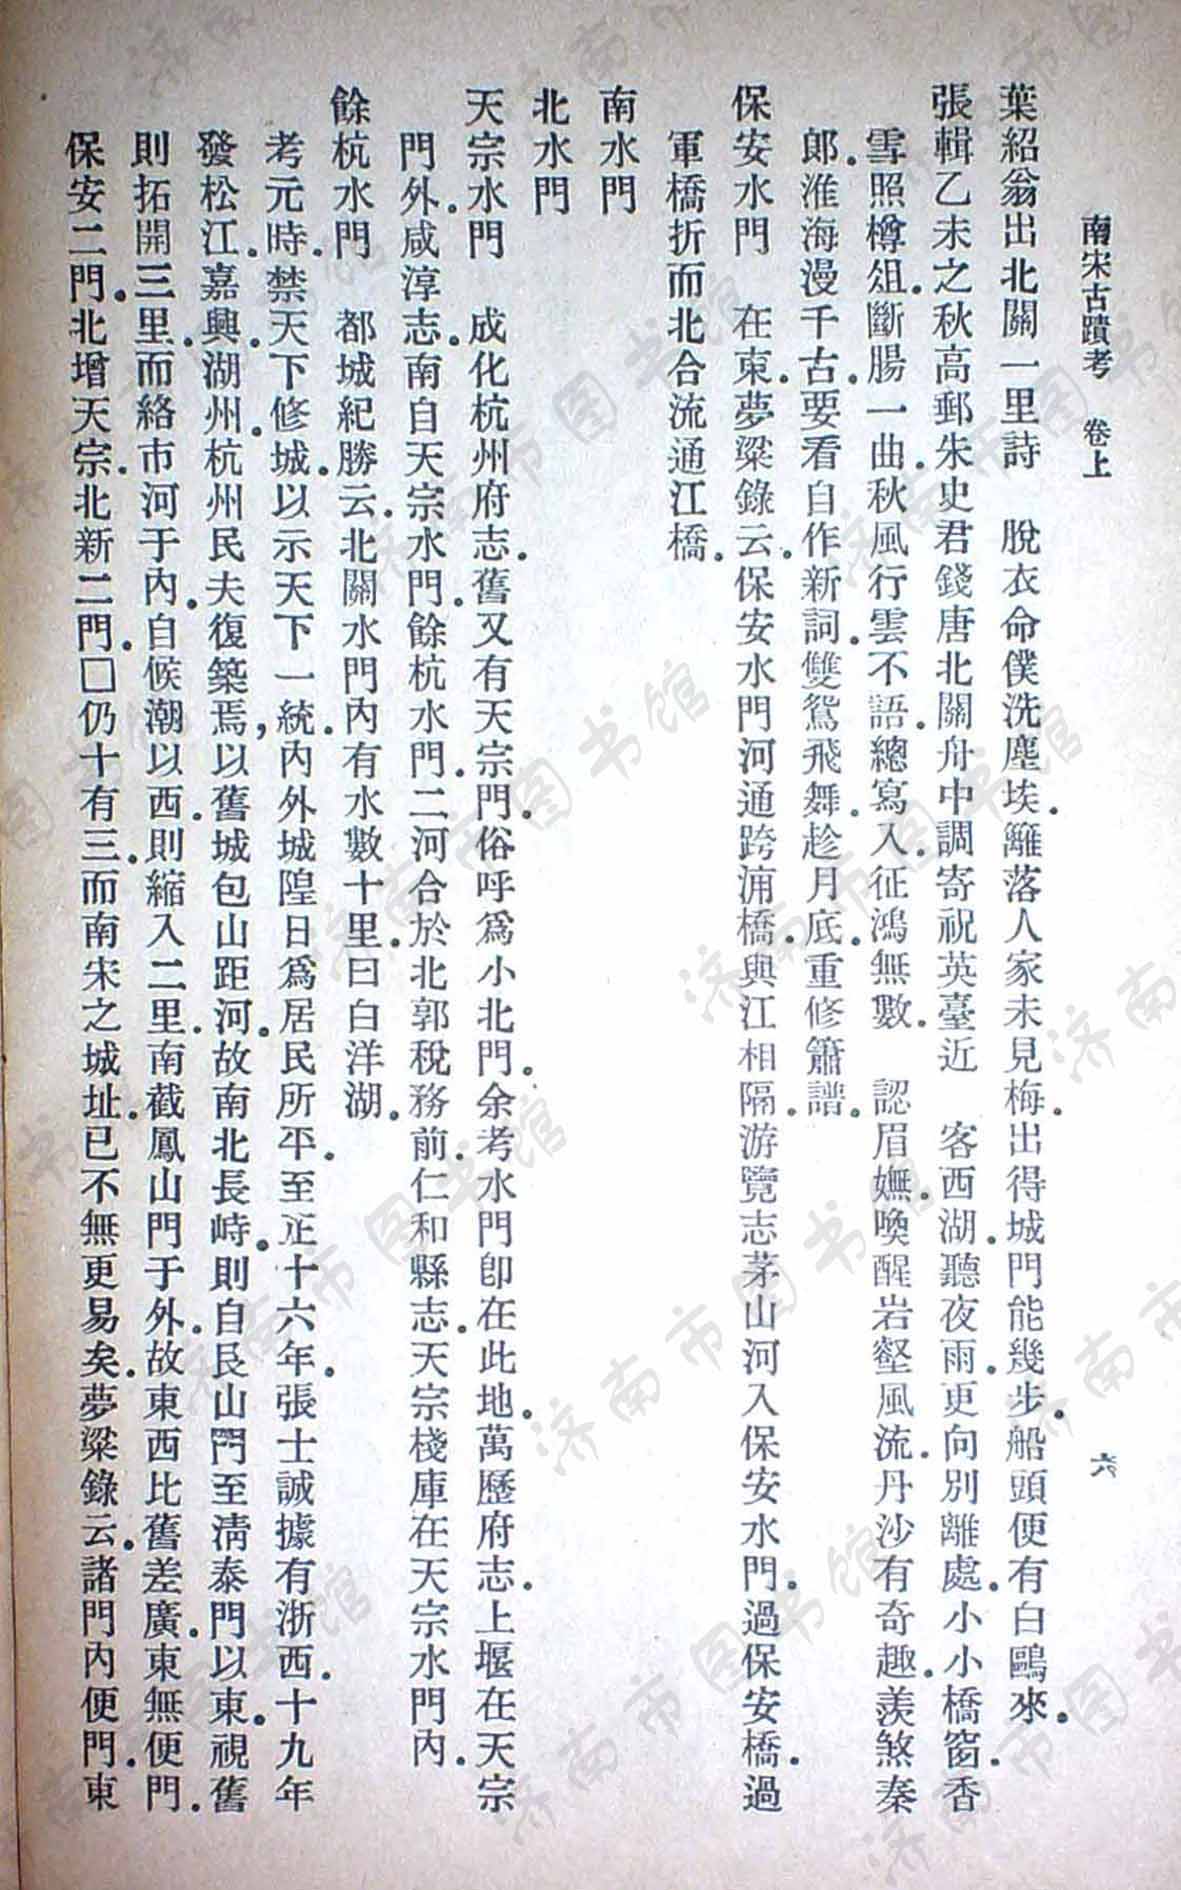 南宋古蹟考　卷上　六
葉紹翁出北關一里詩　脫衣命僕洗塵埃.籬落人家未見梅.出得城門能幾步.船頭便有白鷗來.
張輯乙未之秋高郵朱史君錢唐北關舟中調寄祝英臺近　客西湖.聽夜雨.更向別離處.小小橋窗.香
雪照樽俎.斷腸一曲.秋風行雲不語.總寫入.征鴻無數.　認眉嫵.喚醒岩壑風流.丹沙有奇趣.羨煞秦
郎.淮海漫千古.要看自作新詞.雙鴛飛舞.趁月底.重修簫譜.
保安水門　在東.夢粱錄云.保安水門河通跨浦橋.與江相隔.游覽志茅山河入保安水門.過保安橋.過
軍橋折而北合流通江橋.
南水門
北水門
天宗水門　成化杭州府志.舊又有天宗門.俗呼爲小北門.余考水門卽在此地.萬歷府志.上堰在天宗
門外.咸淳志.南自天宗水門.餘杭水門.二河合於北郭稅務前.仁和縣志.天宗棧庫在天宗水門內.
餘杭水門　都城紀勝云.北關水門內有水數十里.曰白洋湖.
考元時.禁天下修城.以示天下一統.內外城隍日爲居民所平.至正十六年.張士誠據有浙西.十九年
發松江.嘉興.湖州.杭州民夫復築焉,以舊城包山距河.故南北長峙.則自艮山門至淸泰門以東.視舊
則拓開三里.而絡市河于內.自候潮以西.則縮入二里.南截鳳山門于外.故東西比舊差廣.東無便門.
保安二門.北增天宗.北新二門.□仍十有三.而南宋之城址.已不無更易矣.夢粱錄云.諸門內便門.東